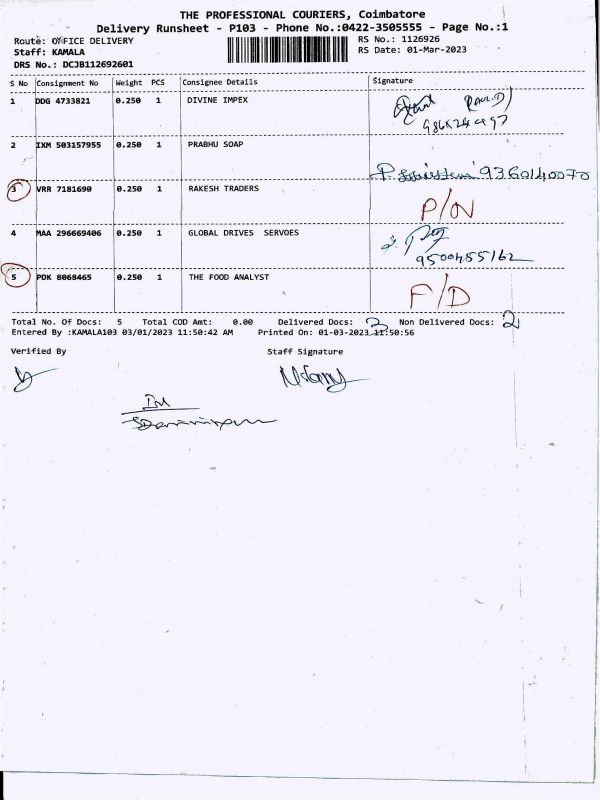 THE PROFESSIONAL COURIERS, Coimbatore
Delivery Runsheet - P103 - Phone No.:0422-3505555 - Page No.:1
Route: OFFICE DELIVERY RS No.: 1126926
Staff: KAMALA RS Date: 01-Mar-2023
DRS No.: DCJB112692601
S No Consignment No Weight PCS Consignee Details Signature
1 DDG 4733821 0.250 1 DIVINE IMPEX
2 IXM 503157955 0.250 1 PRABHU SOAP
9360140070
3 VRR 7181690 0.250 1 RAKESH TRADERS
P/N
4 MAA 296669406 0.250 1 GLOBAL DRIVES SERVOES
9500455162
5 PDK 8068465 0.250 1 THE FOOD ANALYST
F/D
Total No. Of Docs: 5 Total COD Amt: 0.00 Delivered Docs: 3 Non Delivered Docs: 2
Entered By :KAMALA103 03/01/2023 11:50:42 AM Printed On: 01-03-2023 11:50:56
Verified By Staff Signature